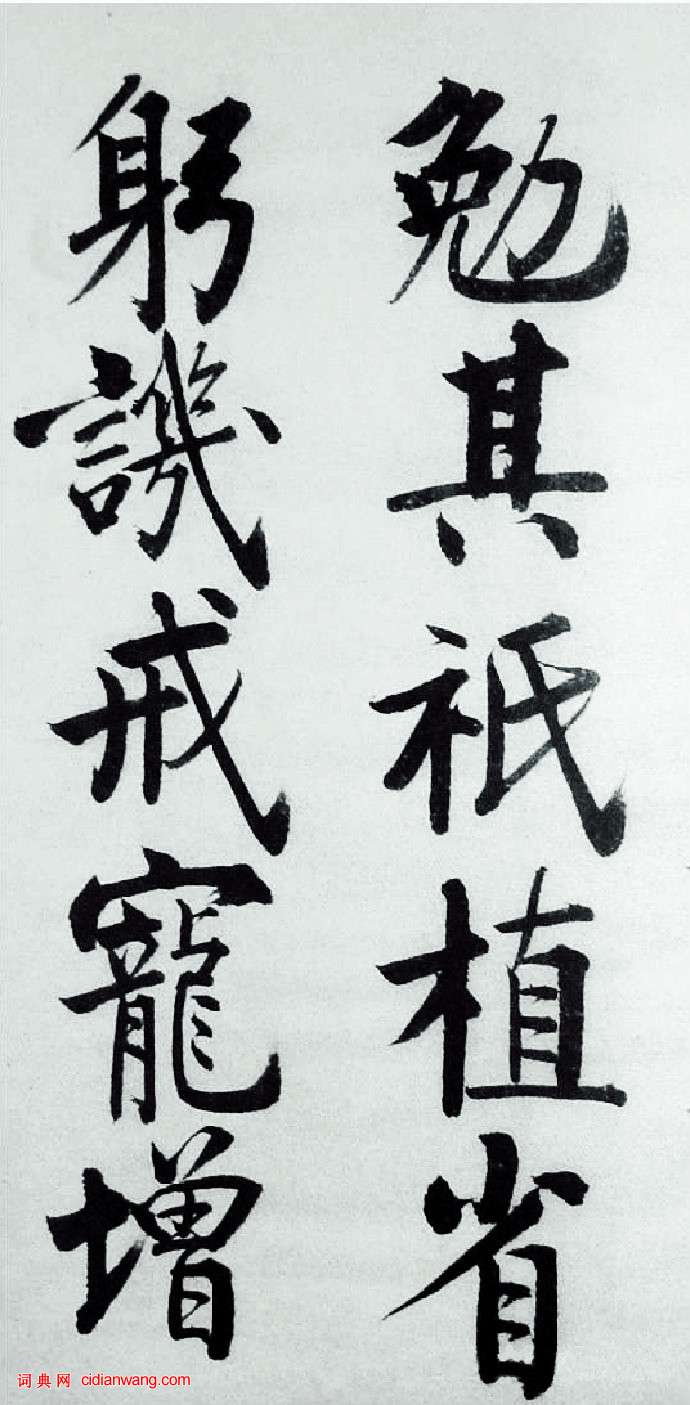 勉其祗植省
躬譏戒寵增
词典网 cidianwang.com